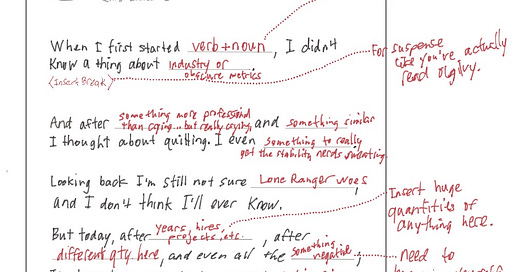 When I first started verb+noun, I didn't
Know a thing about industry or
obscure metrics
<Insert Break>
For suspense
like you've actually
read Ogilvy.
And after something more professional
than crying...but really crying, and something similar
I thought about quitting. I even something to really
get the stability nerds sweating.
Looking back I'm still not sure Lone Ranger woes,
and I don't think I'll ever know.
Insert huge
quantities of
anything here.
But today, after years, hires,
projects, etc., after
different qty here, and even all the something
negative,
need to